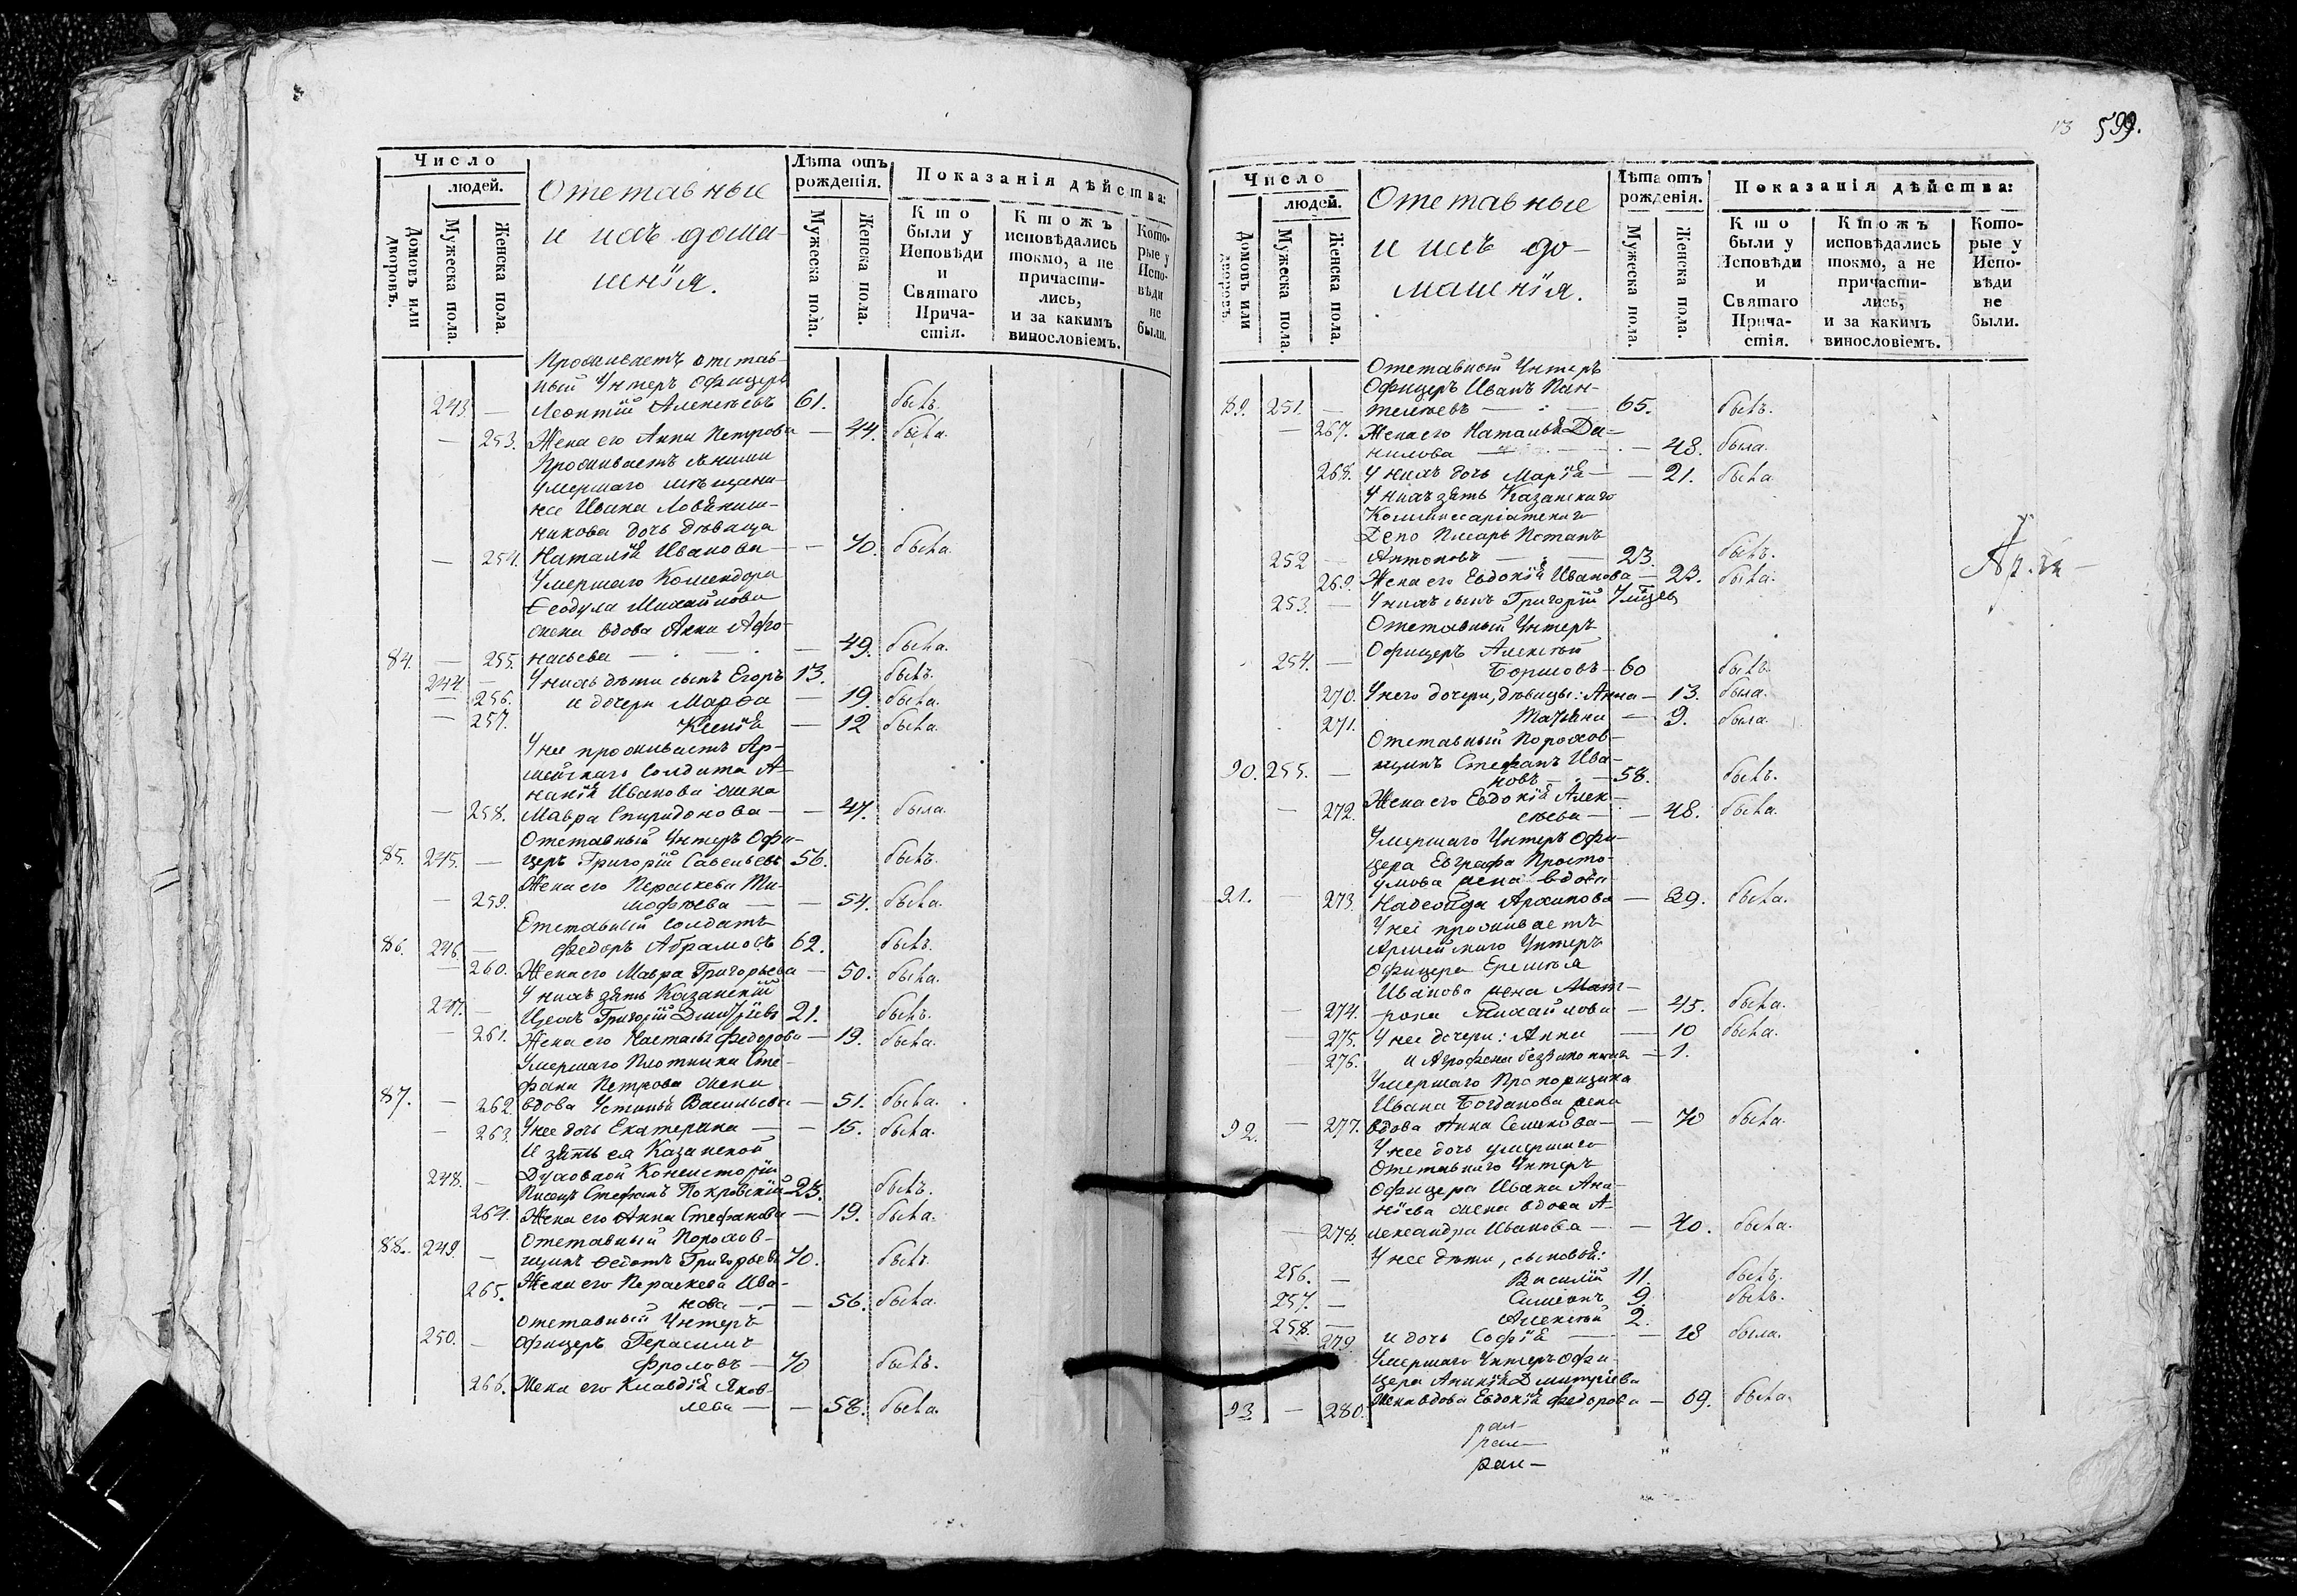 Число
людей.
Домовъ или дворовъ.
Мужеска пола.
Женска пола.
Отставные
и ихъ дома-
шнія.
Лѣта отъ рожденія.
Мужеска пола.
Женска пола.
Показанія дѣйства:
Кто были у Исповѣди и Святаго Причастія.
Ктожъ исповѣдались токмо, а не причастились, и за какимъ винословіемъ.
Которые у Исповѣди не были.
Проживаетъ отстав-
ный Унтеръ Офицеръ
243. — Леонтій Алексѣевъ 61. былъ.
— 253. Жена его Анна Петрова — 44. была.
Проживаетъ
умершаго мѣщани-
на Ивана
никова дочь дѣвица
— 254. Наталія Иванова — 70. была.
Умершаго
Ѳеодула Михайлова
жена вдова Анна Афо-
84. — 255. насьева — 49. была.
244 — У нихъ дѣти сынъ Егоръ 13. былъ.
— 256. и дочери Марѳа — 19. была.
— 257. Ксенія — 12 была.
У нее проживаетъ Ар-
мейскаго Солдата А-
нанія Иванова жена
— 258. Мавра Спиридонова — 47. была.
Отставный Унтеръ Офи-
85. 245. — церъ Григорій Савельевъ 56. былъ.
Жена его Параскева Ти-
— 259. мофѣева — 54. была.
Отставный Солдатъ
86. 246. — Федоръ Абрамовъ 62. былъ.
— 260. Жена его Мавра Григорьева — 50. была.
У нихъ зять Казанскій
247. — Цехъ Григорій Дмитріевъ 21. былъ.
— 261. Жена его Настасья Федорова — 19. была.
Умершаго Плотника Сте-
фана Петрова жена
87. — 262. вдова Устинья Васильева — 51. была.
— 263. У нее дочь Екатерина — 15. была.
И зять ея Казанской
Духовной Консисторіи
248. — Писецъ Стефанъ Покровскій 23. былъ.
264. Жена его Анна Стефанова — 19. была.
Отставный Порохов-
88. 249. — щикъ Ѳедотъ Григорьевъ 70. былъ.
Жена его Параскева Ива-
265. нова — 56. была.
Отставный Унтеръ
250. — Офицеръ Герасимъ
Фроловъ — 70 былъ.
266. Жена его Клавдія Яков-
лева — 58. была.
13 599.
Число
людей.
Домовъ или дворовъ.
Мужеска пола.
Женска пола.
Отставные
и ихъ до-
машнія.
Лѣта отъ рожденія.
Мужеска пола.
Женска пола.
Показанія дѣйства:
Кто были у Исповѣди и Святаго Причастія.
Ктожъ исповѣдались токмо, а не причастились, и за какимъ винословіемъ.
Которые у Исповѣди не были.
Отставной Унтеръ
Офицеръ Иванъ Пан-
89. 251. — телѣевъ — 65. былъ.
— 267. Жена его Наталья Да-
нилова — 48. была.
268. У нихъ дочь Марія — 21. была
У нихъ зять Казанскаго
Коммиссаріатскаго
Депо Писарь Потапъ
252 — Антоновъ — 23. былъ.
269. Жена его Евдокія Иванова — 23. была.
253. — У нихъ сынъ Григорій
Отставный Унтеръ
254. — Офицеръ Алексѣй
Борисовъ — 60 былъ
270. У него дочери, дѣвицы: Анна — 13. была.
271. Татьяна — 9. была.
Отставный Порохов-
90. 255. — щикъ Стефанъ Ива-
новъ — 58. былъ.
— 272. Жена его Евдокія Алек-
сѣева — 48. была.
Умершаго Унтеръ Офи-
цера Евграфа Просто-
умова жена вдова
91. — 273. Надежда Архипова — 39. была.
У неё проживаетъ
Армейскаго Унтеръ
Офицера Еремѣя
Иванова жена Мат-
— 274. рона Михайлова — 45. была.
— 275. У нее дочери: Анна — 10 была.
— 276. и Агрофена беззаконная — 1.
Умершаго Прапорщика
Ивана Богданова жена
92. — 277. вдова Анна Семенова — 70 была.
У нее дочь умершаго
Отставнаго Унтеръ
Офицера Ивана Ана-
ніева жена вдова А-
— 278. лександра Иванова — 40. была.
У нее дѣти, сыновья:
256. — Василій 11. былъ.
257. — Симеонъ 9. былъ.
258. — Алексѣй 2.
279. и дочь Софія — 18 была.
Умершаго Унтеръ Офи-
цера Ананія Дмитріева
93 — 280. Жена вдова Евдокія Федорова — 69. была.